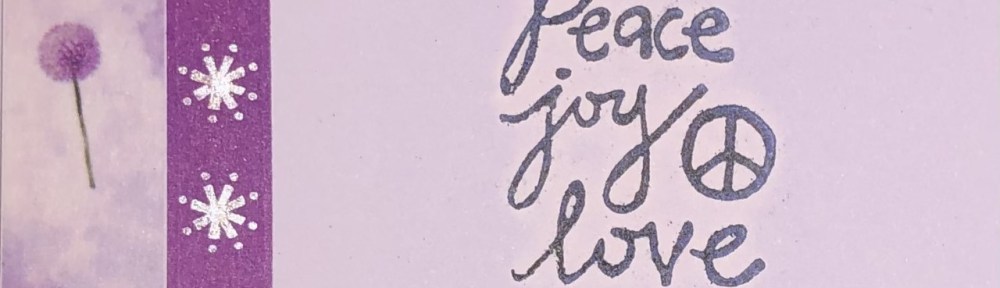 Peace
joy
love